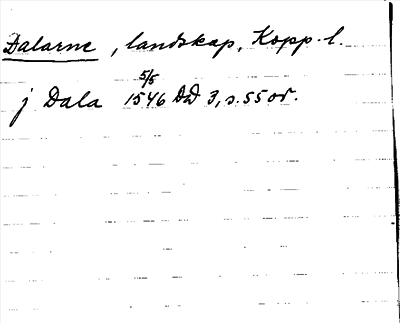 Dalarne, landskap, Kopp. l.
j Dala 1546 5/5 DD 3, s. 55 or.